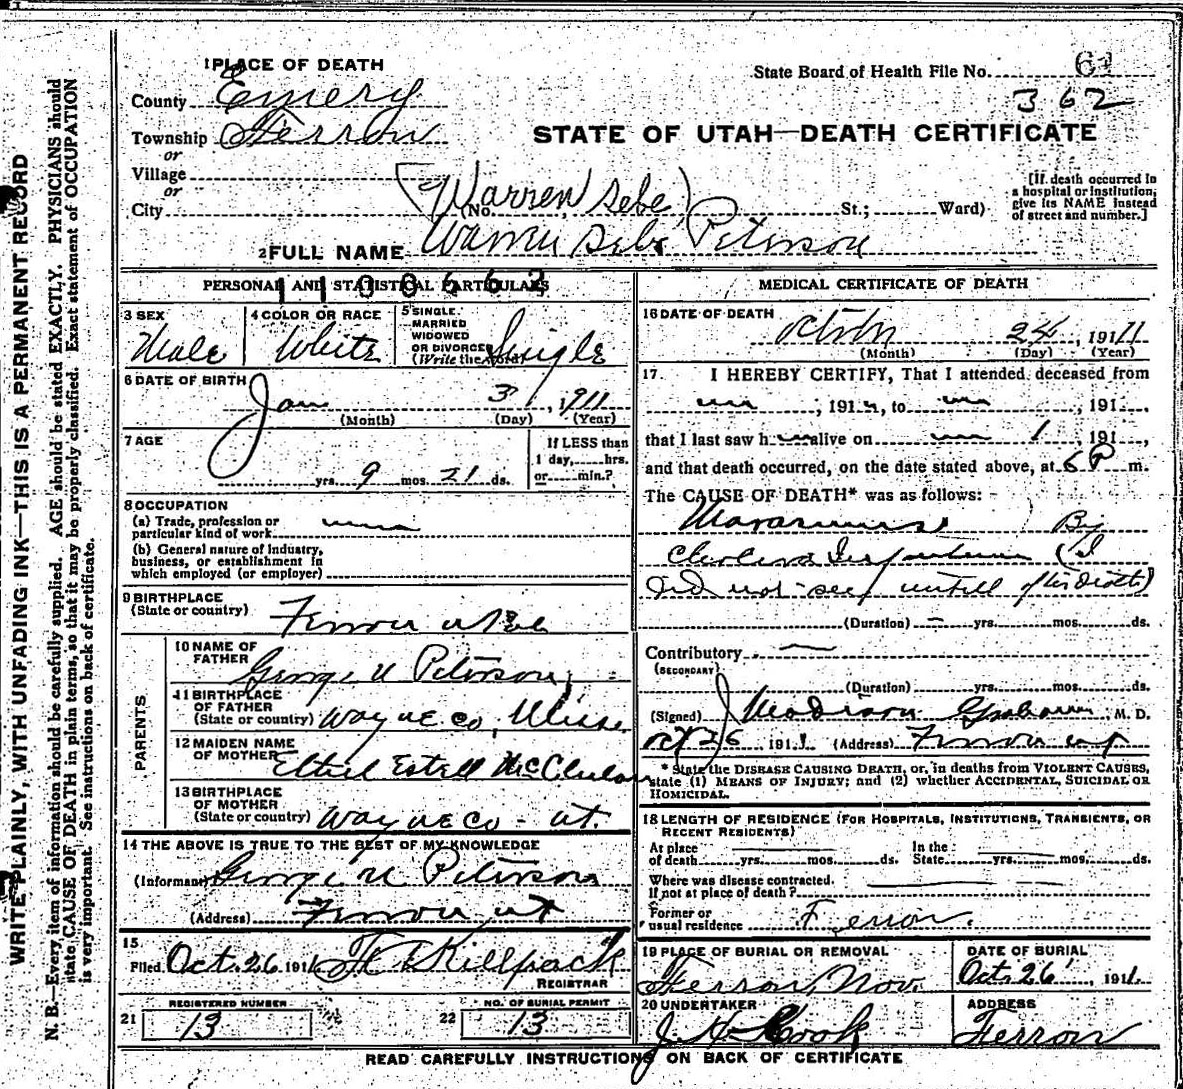 WRITE PLAINLY, WITH UNFADING INK—THIS IS A PERMANENT RECORD
N. B.—Every item of information should be carefully supplied. AGE should be stated EXACTLY. PHYSICIANS should
state CAUSE OF DEATH in plain terms, so that it may be properly classified. Exact statement of OCCUPATION
is very important. See instructions on back of certificate.
1 PLACE OF DEATH
State Board of Health File No.
362
County Emery
Township Ferron
or
STATE OF UTAH—DEATH CERTIFICATE
Village
or
(Warren Sebe)
City (No. St.; Ward)
[If death occurred in
a hospital or institution,
give its NAME instead
of street and number.]
2 FULL NAME Warren Sebe Peterson
PERSONAL AND STATISTICAL PARTICULARS
1100662
3 SEX Male
4 COLOR OR RACE White
5 SINGLE,
MARRIED
WIDOWED
OR DIVORCED
(Write the word) Single
6 DATE OF BIRTH Jan 3, 1911
(Month) (Day) (Year)
7 AGE
yrs. 9 mos. 21 ds.
If LESS than
1 day, hrs.
or min.?
8 OCCUPATION
(a) Trade, profession or
particular kind of work
(b) General nature of industry,
business, or establishment in
which employed (or employer)
9 BIRTHPLACE
(State or country) Ferron Utah
PARENTS
10 NAME OF
FATHER George U Peterson
11 BIRTHPLACE
OF FATHER
(State or country) Wayne Co,
12 MAIDEN NAME
OF MOTHER Ethel Estell
13 BIRTHPLACE
OF MOTHER
(State or country) Wayne Co - Ut.
14 THE ABOVE IS TRUE TO THE BEST OF MY KNOWLEDGE
(Informant) George U Peterson
(Address) Ferron Ut
15
Filed Oct. 26 1911 Killpack
REGISTRAR
REGISTERED NUMBER
21 13
NO. OF BURIAL PERMIT
22 13
MEDICAL CERTIFICATE OF DEATH
16 DATE OF DEATH
24, 1911
(Month) (Day) (Year)
17. I HEREBY CERTIFY, That I attended deceased from
, 191 , to , 191 ,
that I last saw h alive on , 191 ,
and that death occurred, on the date stated above, at 6 P m.
The CAUSE OF DEATH* was as follows:
Marasmus By
Cholera Infantum (I
Did not see untill after death)
(Duration) yrs. mos. ds.
Contributory
(SECONDARY)
(Duration) yrs. mos. ds.
(Signed) J Madison Graham, M. D.
Oct 26 1911 (Address) Ferron Ut
* State the DISEASE CAUSING DEATH, or, in deaths from VIOLENT CAUSES,
state (1) MEANS OF INJURY; and (2) whether ACCIDENTAL, SUICIDAL OR
HOMICIDAL.
18 LENGTH OF RESIDENCE (FOR HOSPITALS, INSTITUTIONS, TRANSIENTS, OR
RECENT RESIDENTS)
At place
of death yrs. mos. ds.
In the
State yrs. mos. ds.
Where was disease contracted.
If not at place of death?
Former or
usual residence Ferron.
19 PLACE OF BURIAL OR REMOVAL
Ferron,
DATE OF BURIAL
Oct. 26, 1911.
20 UNDERTAKER
J. H. Cook
ADDRESS
Ferron
READ CAREFULLY INSTRUCTIONS ON BACK OF CERTIFICATE